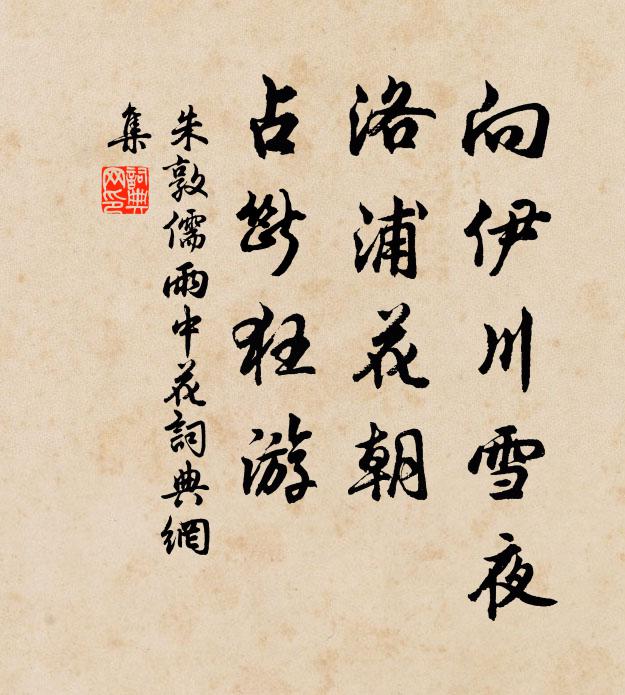 向伊川雪夜
洛浦花朝
占断狂游
朱敦儒雨中花詞典網
集
詞典
网印